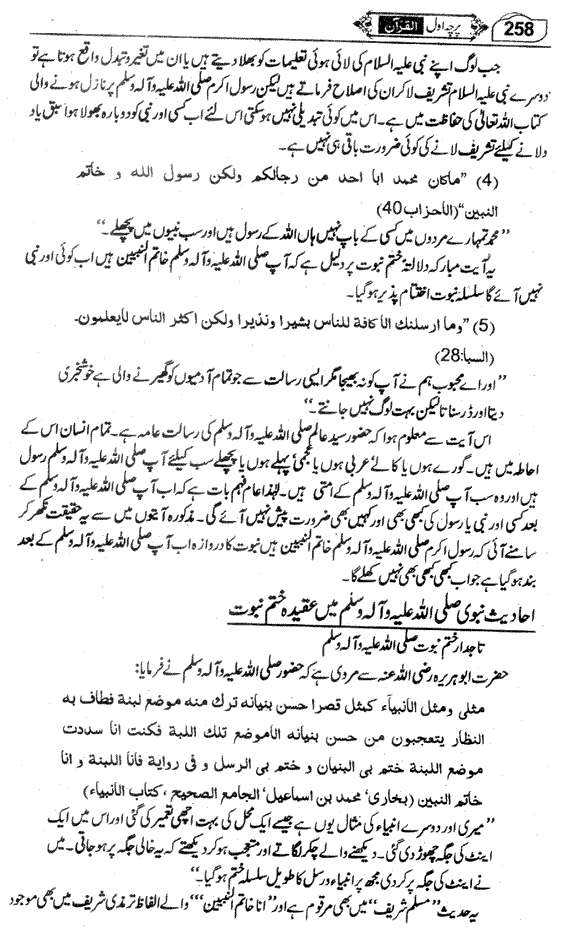 258 پرچہ اول القرآن
جب لوگ اپنے نبی علیہ السلام کی لائی ہوئی تعلیمات کو بھلا دیتے ہیں یا ان میں تغیر و تبدل واقع ہوتا ہے تو
دوسرے نبی علیہ السلام تشریف لا کر ان کی اصلاح فرماتے ہیں لیکن رسول اکرم صلی اللہ علیہ وآلہ وسلم پر نازل ہونے والی
کتاب اللہ تعالیٰ کی حفاظت میں ہے۔ اس میں کوئی تبدیلی نہیں ہو سکتی اس لئے اب کسی اور نبی کو دوبارہ بھولا ہوا سبق یاد
دلانے کیلئے تشریف لانے کی کوئی ضرورت باقی ہی نہیں ہے۔
(4) ”ماکان محمد ابا احد من رجالکم ولکن رسول الله و خاتم
النبین“(الأحزاب 40)
”محمد تمہارے مردوں میں کسی کے باپ نہیں ہاں اللہ کے رسول ہیں اور سب نبیوں میں پچھلے۔“
یہ آیت مبارکہ دلالتہ ختم نبوت پر دلیل ہے کہ آپ صلی اللہ علیہ وآلہ وسلم خاتم النبیین ہیں اب کوئی اور نبی
نہیں آئے گا سلسلہ نبوت اختتام پذیر ہو گیا۔
(5) ”وما ارسلنك الأکافة للناس بشیرا ونذیرا ولکن اکثر الناس لایعلمون۔
(السبا:28)
”اور اے محبوب ہم نے آپ کو نہ بھیجا مگر ایسی رسالت سے جو تمام آدمیوں کو گھیرنے والی ہے خوشخبری
دیتا اور ڈر سناتا لیکن بہت لوگ نہیں جانتے۔“
اس آیت سے معلوم ہوا کہ حضور سید عالم صلی اللہ علیہ وآلہ وسلم کی رسالت عامہ ہے۔ تمام انسان اس کے
احاطہ میں ہیں۔ گورے ہوں یا کالے عربی ہوں یا عجمی پہلے ہوں یا پچھلے سب کیلئے آپ صلی اللہ علیہ وآلہ وسلم رسول
ہیں اور وہ سب آپ صلی اللہ علیہ وآلہ وسلم کے امتی ہیں۔ لہٰذا عام فہم بات ہے کہ اب آپ صلی اللہ علیہ وآلہ وسلم کے
بعد کسی اور نبی یا رسول کی کبھی بھی اور کہیں بھی ضرورت پیش نہیں آئے گی۔ مذکورہ آیتوں میں سے یہ حقیقت نکھر کر
سامنے آئی کہ رسول اکرم صلی اللہ علیہ وآلہ وسلم خاتم النبیین ہیں نبوت کا دروازہ اب آپ صلی اللہ علیہ وآلہ وسلم کے بعد
بند ہو گیا ہے جو اب کبھی کبھی بھی نہیں کھلے گا۔
احادیث نبوی صلی اللہ علیہ وآلہ وسلم میں عقیدہ ختم نبوت
تاجدار ختم نبوت صلی اللہ علیہ وآلہ وسلم
حضرت ابو ہریرہ رضی اللہ عنہ سے مروی ہے کہ حضور صلی اللہ علیہ وآلہ وسلم نے فرمایا:
مثلی ومثل الأنبیاء کمثل قصرا حسن بنیانه ترك منه موضع لبنة فطاف به
النظار یتعجبون من حسن بنیانه الأموضع تلك اللبة فکنت انا سددت
موضع اللبنة ختم بی البنیان و ختم بی الرسل و فی روایة فانا اللبنة و انا
خاتم النبین (بخاری، محمد بن اسماعیل، الجامع الصحیح، کتاب الأنبیاء)
”میری اور دوسرے انبیاء کی مثال یوں ہے جیسے ایک محل کی بہت اچھی تعمیر کی گئی اور اس میں ایک
اینٹ کی جگہ چھوڑ دی گئی۔ دیکھنے والے چکر لگاتے اور متعجب ہو کر دیکھتے کہ یہ خالی جگہ پر ہو جاتی۔ میں
نے اینٹ کی جگہ پر کر دی مجھ پر انبیاء و رسل کا طویل سلسلہ ختم ہو گیا۔“
یہ حدیث ”مسلم شریف“ میں بھی مرقوم ہے اور ”انا خاتم النبیین“ والے الفاظ ترمذی شریف میں بھی موجود